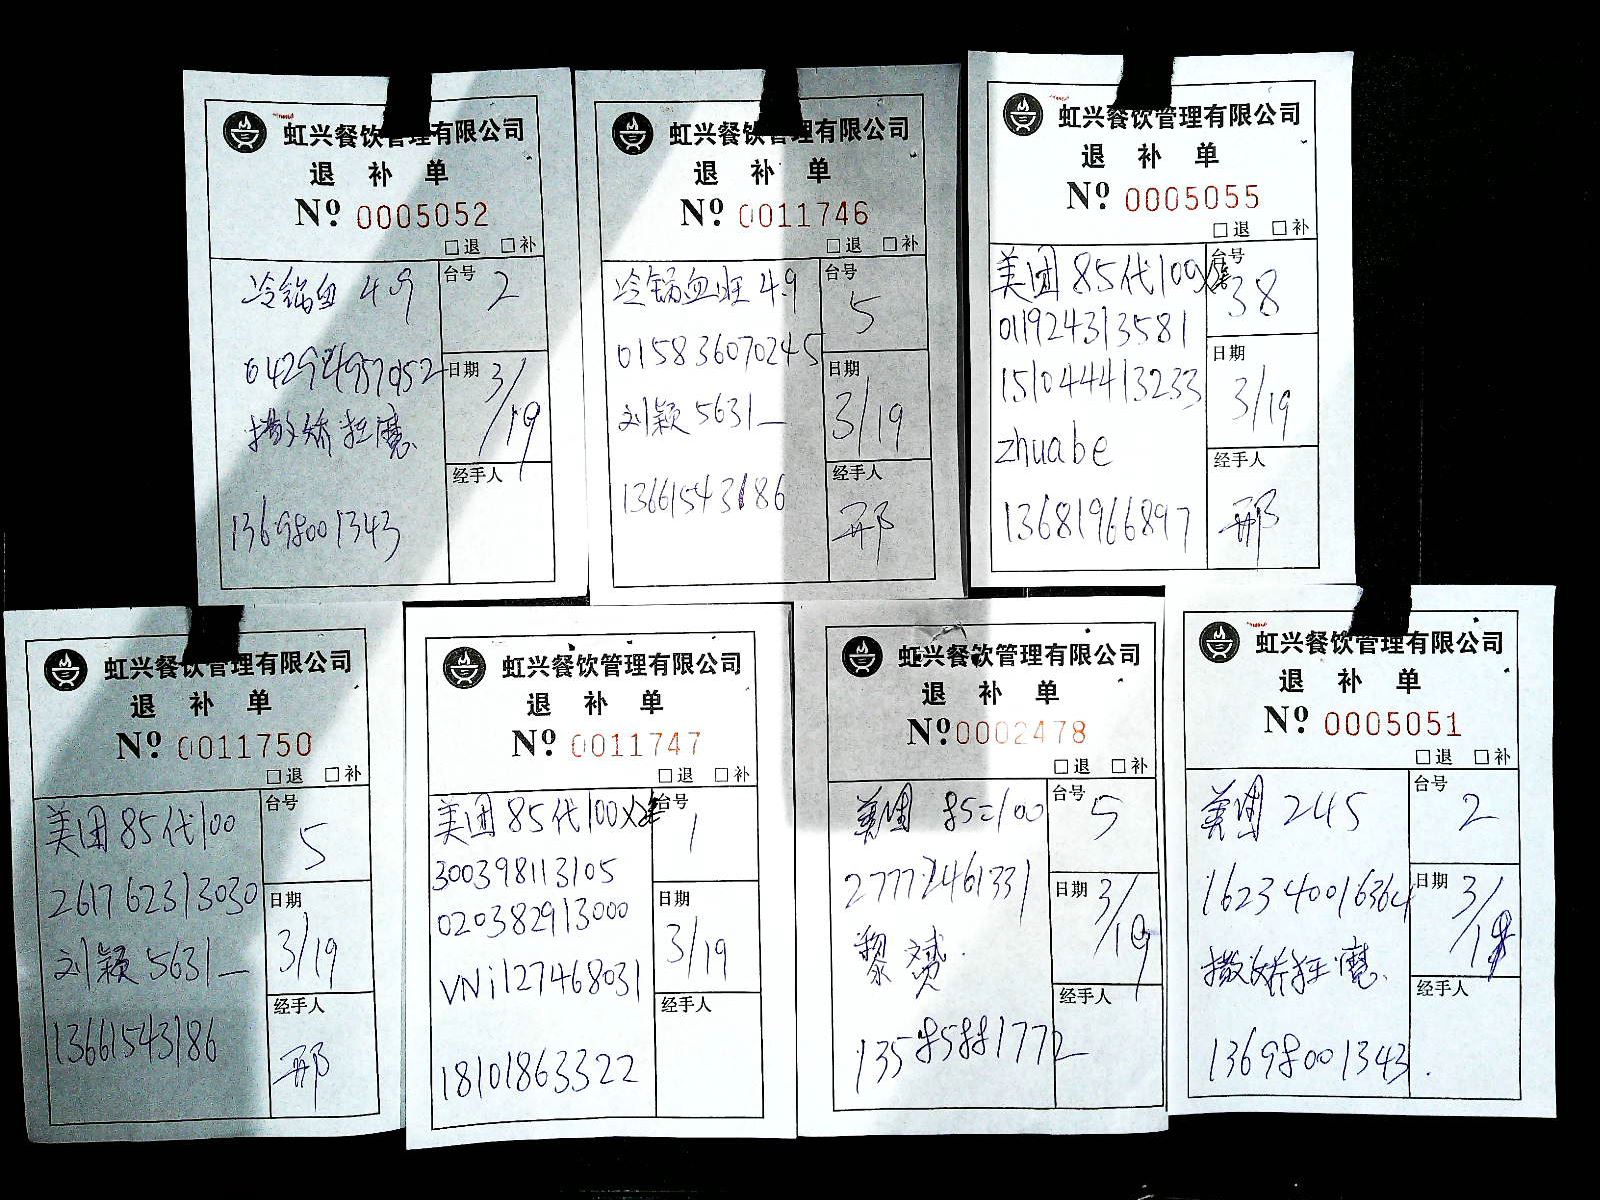 虹兴餐饮管理有限公司
退 补 单
Nº 0005052
□退 □补
冷锅血 4.9
台号 2
042924957052
日期 3/19
撒娇狂魔
经手人
13698001343
虹兴餐饮管理有限公司
退 补 单
Nº 0011746
□退 □补
冷锅血旺 4.9
台号 5
015836070245
日期 3/19
刘颖5631_
经手人 邢
13661543186
虹兴餐饮管理有限公司
退 补 单
Nº 0005055
□退 □补
美团85代100X2
台号 38
011924313581
151044413233
日期 3/19
zhuabe
经手人 邢
13681966897
虹兴餐饮管理有限公司
退 补 单
Nº 0011750
□退 □补
美团85代100
台号 5
261762313030
日期 3/19
刘颖5631_
经手人 邢
13661543186
虹兴餐饮管理有限公司
退 补 单
Nº 0011747
□退 □补
美团85代100X2
台号 1
300398113105
020382913000
日期 3/19
VNi127468031
经手人
18101863322
虹兴餐饮管理有限公司
退 补 单
Nº 0002478
□退 □补
美团 85=100
台号 5
277772461331
日期 3/19
黎
经手人
13585881772
虹兴餐饮管理有限公司
退 补 单
Nº 0005051
□退 □补
美团 245
台号 2
162340016364
日期 3/19
撒娇狂魔
经手人
13698001343